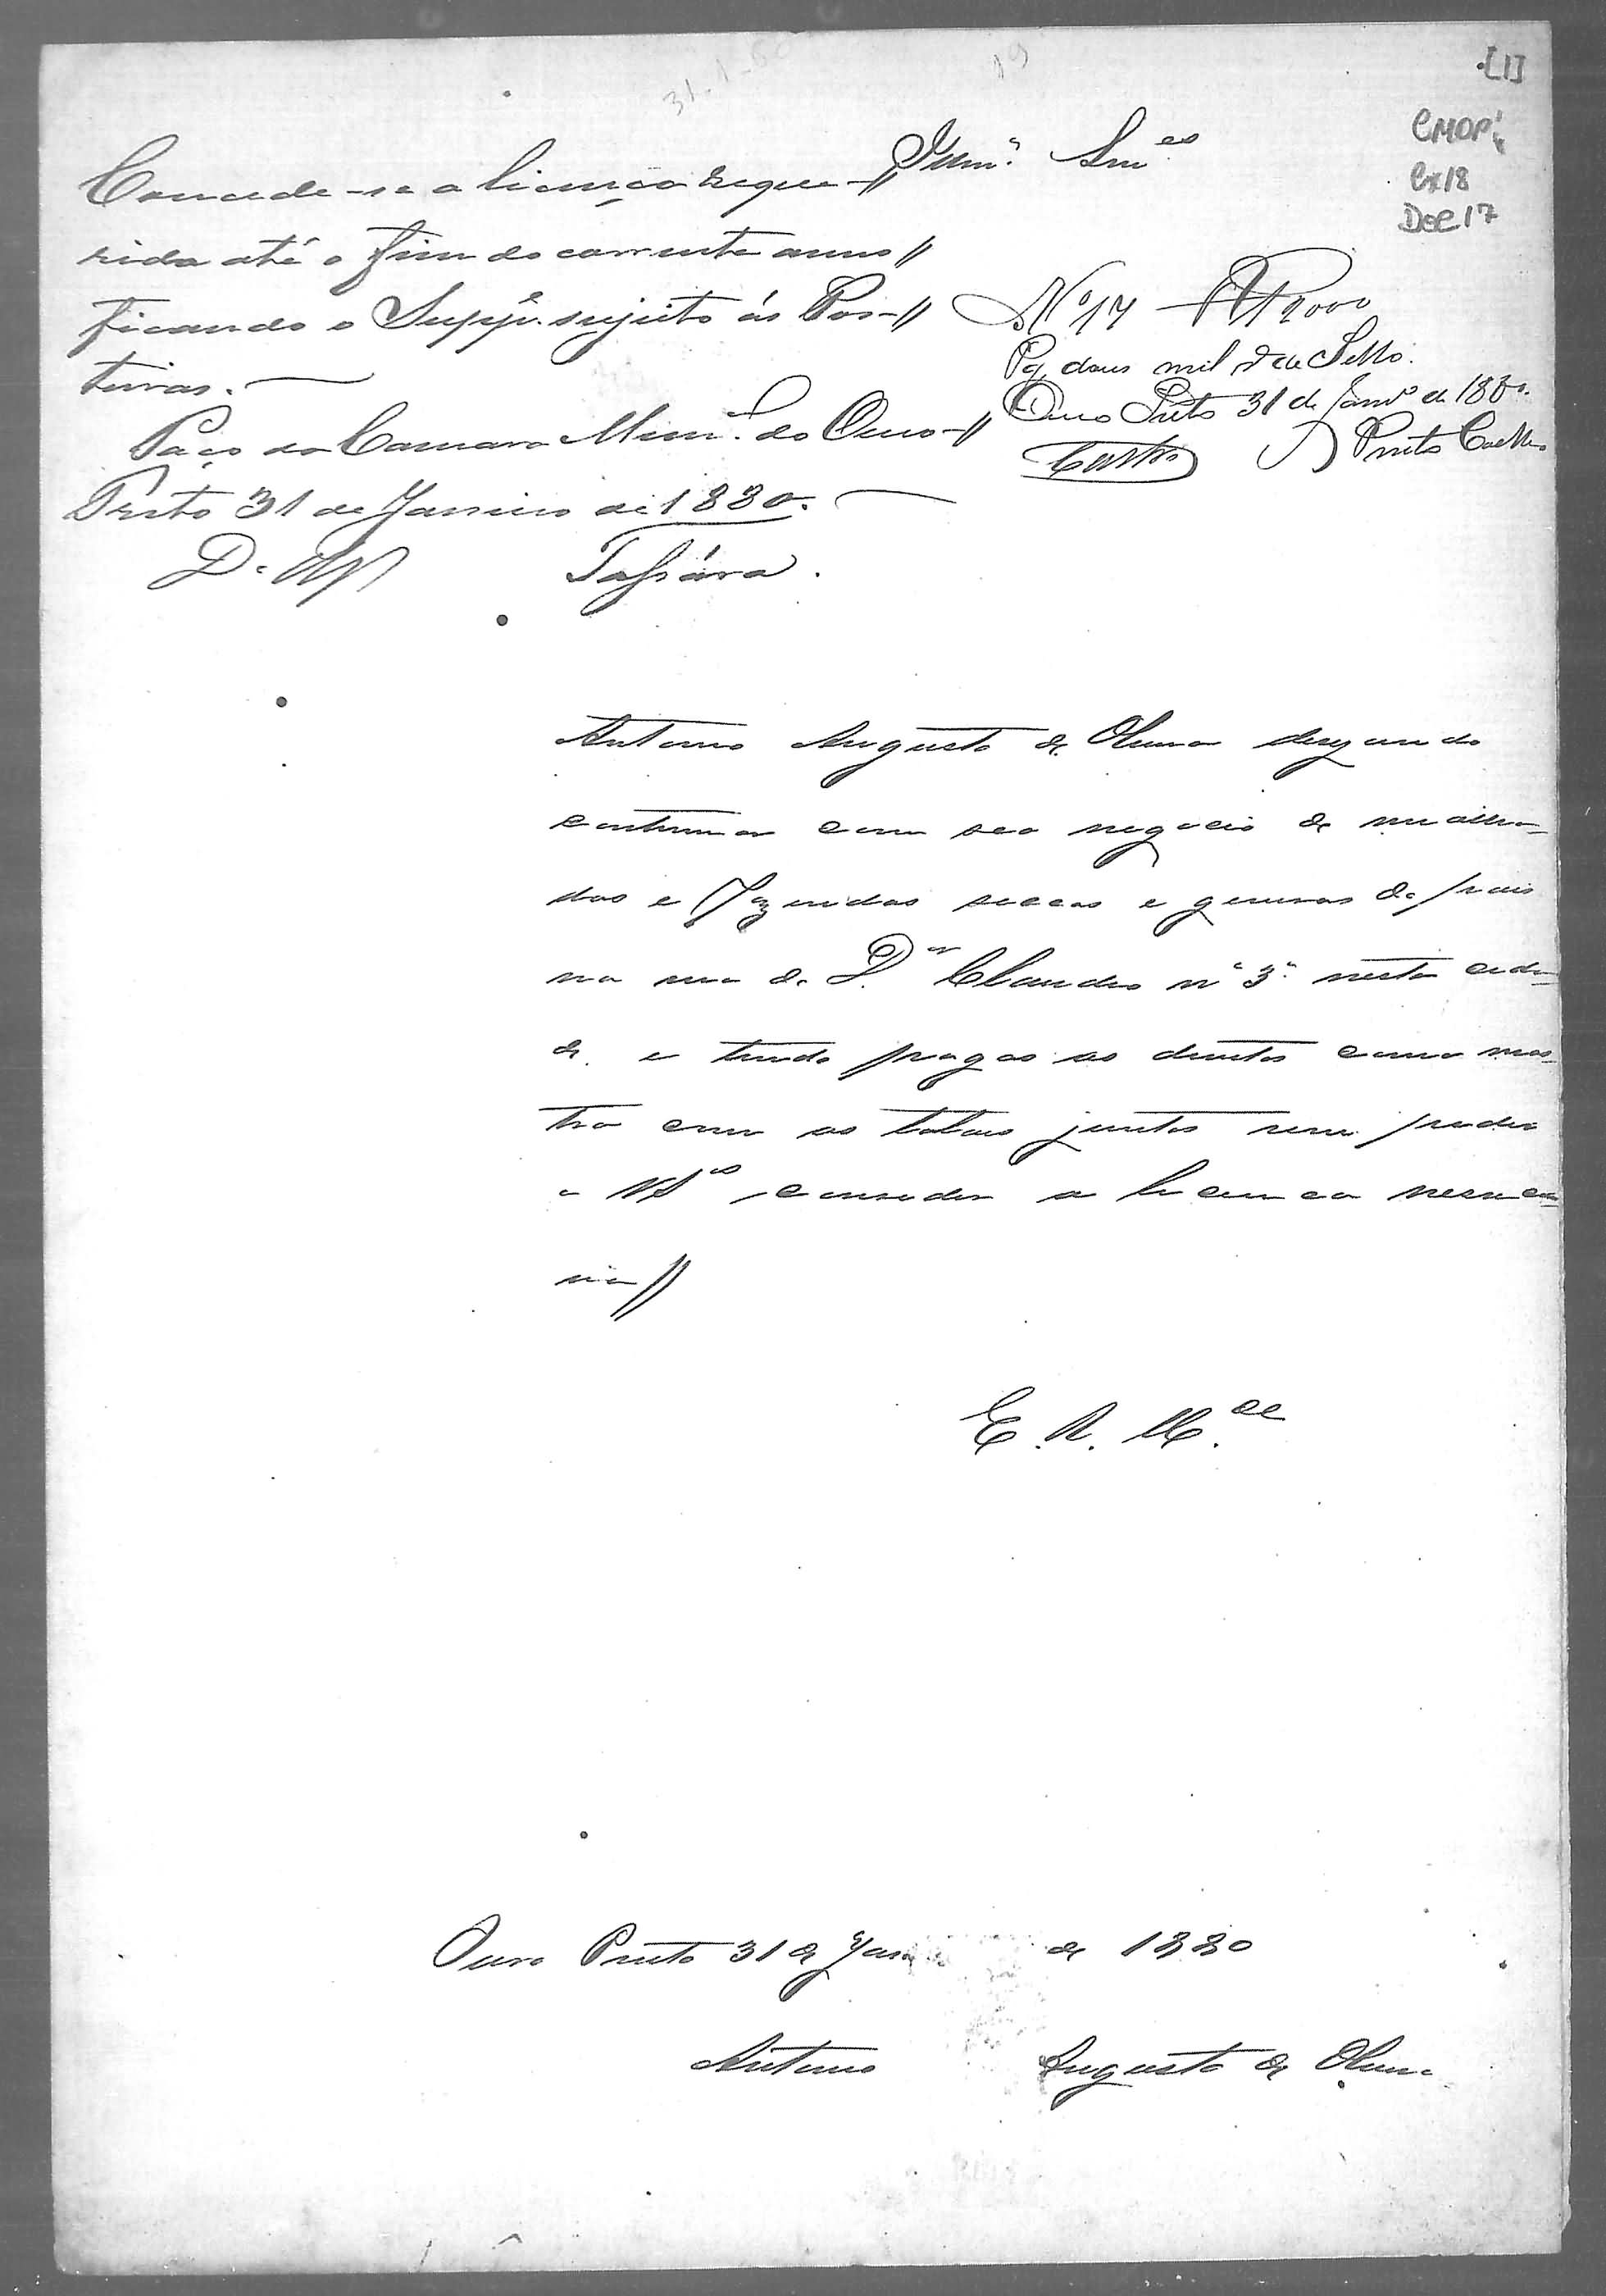 [1]
CMOP
Cx18
Doc 17
31-1-80
19
Illm.os Snr.es
Concede-se a licença reque-//
rida até o fim do corrente anno//
ficando o Suppe. sujeito ás Pos-//
turas.
Paço da Camara Mun.al do Ouro-//
Preto 31 de Janeiro de 1880.
Nº 17 2000
Pg. dous mil rs de Sello.
Ouro Preto 31 de Janr.o de 1880.
Castro Preto Coelho
Antonio Augusto de Oliveira desejando
continuar com seo negocio de molha-
dos e Fazendas seccas e generos do pais
na rua do D.or Claudio nº 3 nesta cida-
de e tendo pagos os direitos como mos-
tra com os taloes juntos vem pedir
a VS.as conceder a licenca necessa-
ria//
E. R. M.ce
Ouro Preto 31 de Jan de 1880
Antonio Augusto de Oliveira